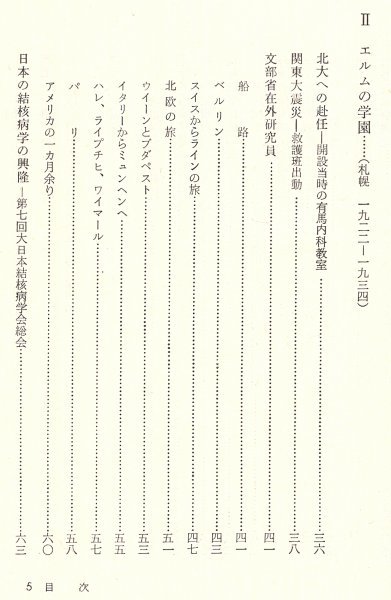 II エルムの学園……(札幌 一九二二―一九三四)
北大への赴任―開設当時の有馬内科教室……三六
関東大震災―救護班出動……三八
文部省在外研究員……四一
船路……四一
ベルリン……四三
スイスからラインの旅……四七
北欧の旅……五一
ウイーンとブダペスト……五三
イタリーからミュンヘンへ……五五
ハレ、ライプチヒ、ワイマール……五七
パリ……五八
アメリカの一カ月余り……六〇
日本の結核病学の興隆―第七回大日本結核病学会総会……六三
5 目次